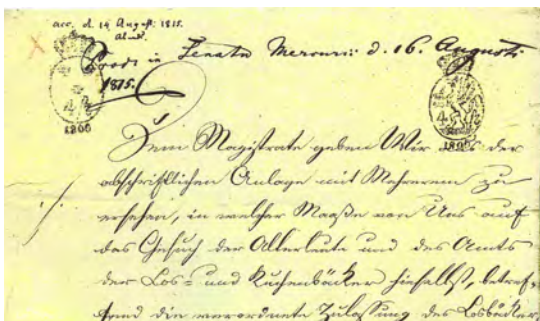 acc. d. 14 August: 1815.
Prod: in Senatu Mercurii d. 16. Augusti
1815.
4
4
1800
1800
Dem Magistrate geben Wir aus der
abschriftlichen Anlage mit Mehrerem zu
ersehen, in welcher Maaße von Uns auf
das Gesuch der Alterleute und des Amts
der Los- und Kuchenbäcker hieselbst, betref-
fend die verordnete Zulassung des Losbäcker